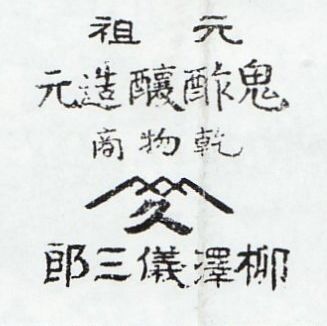 元祖
鬼酢醸造元
乾物商
久
柳澤儀三郎